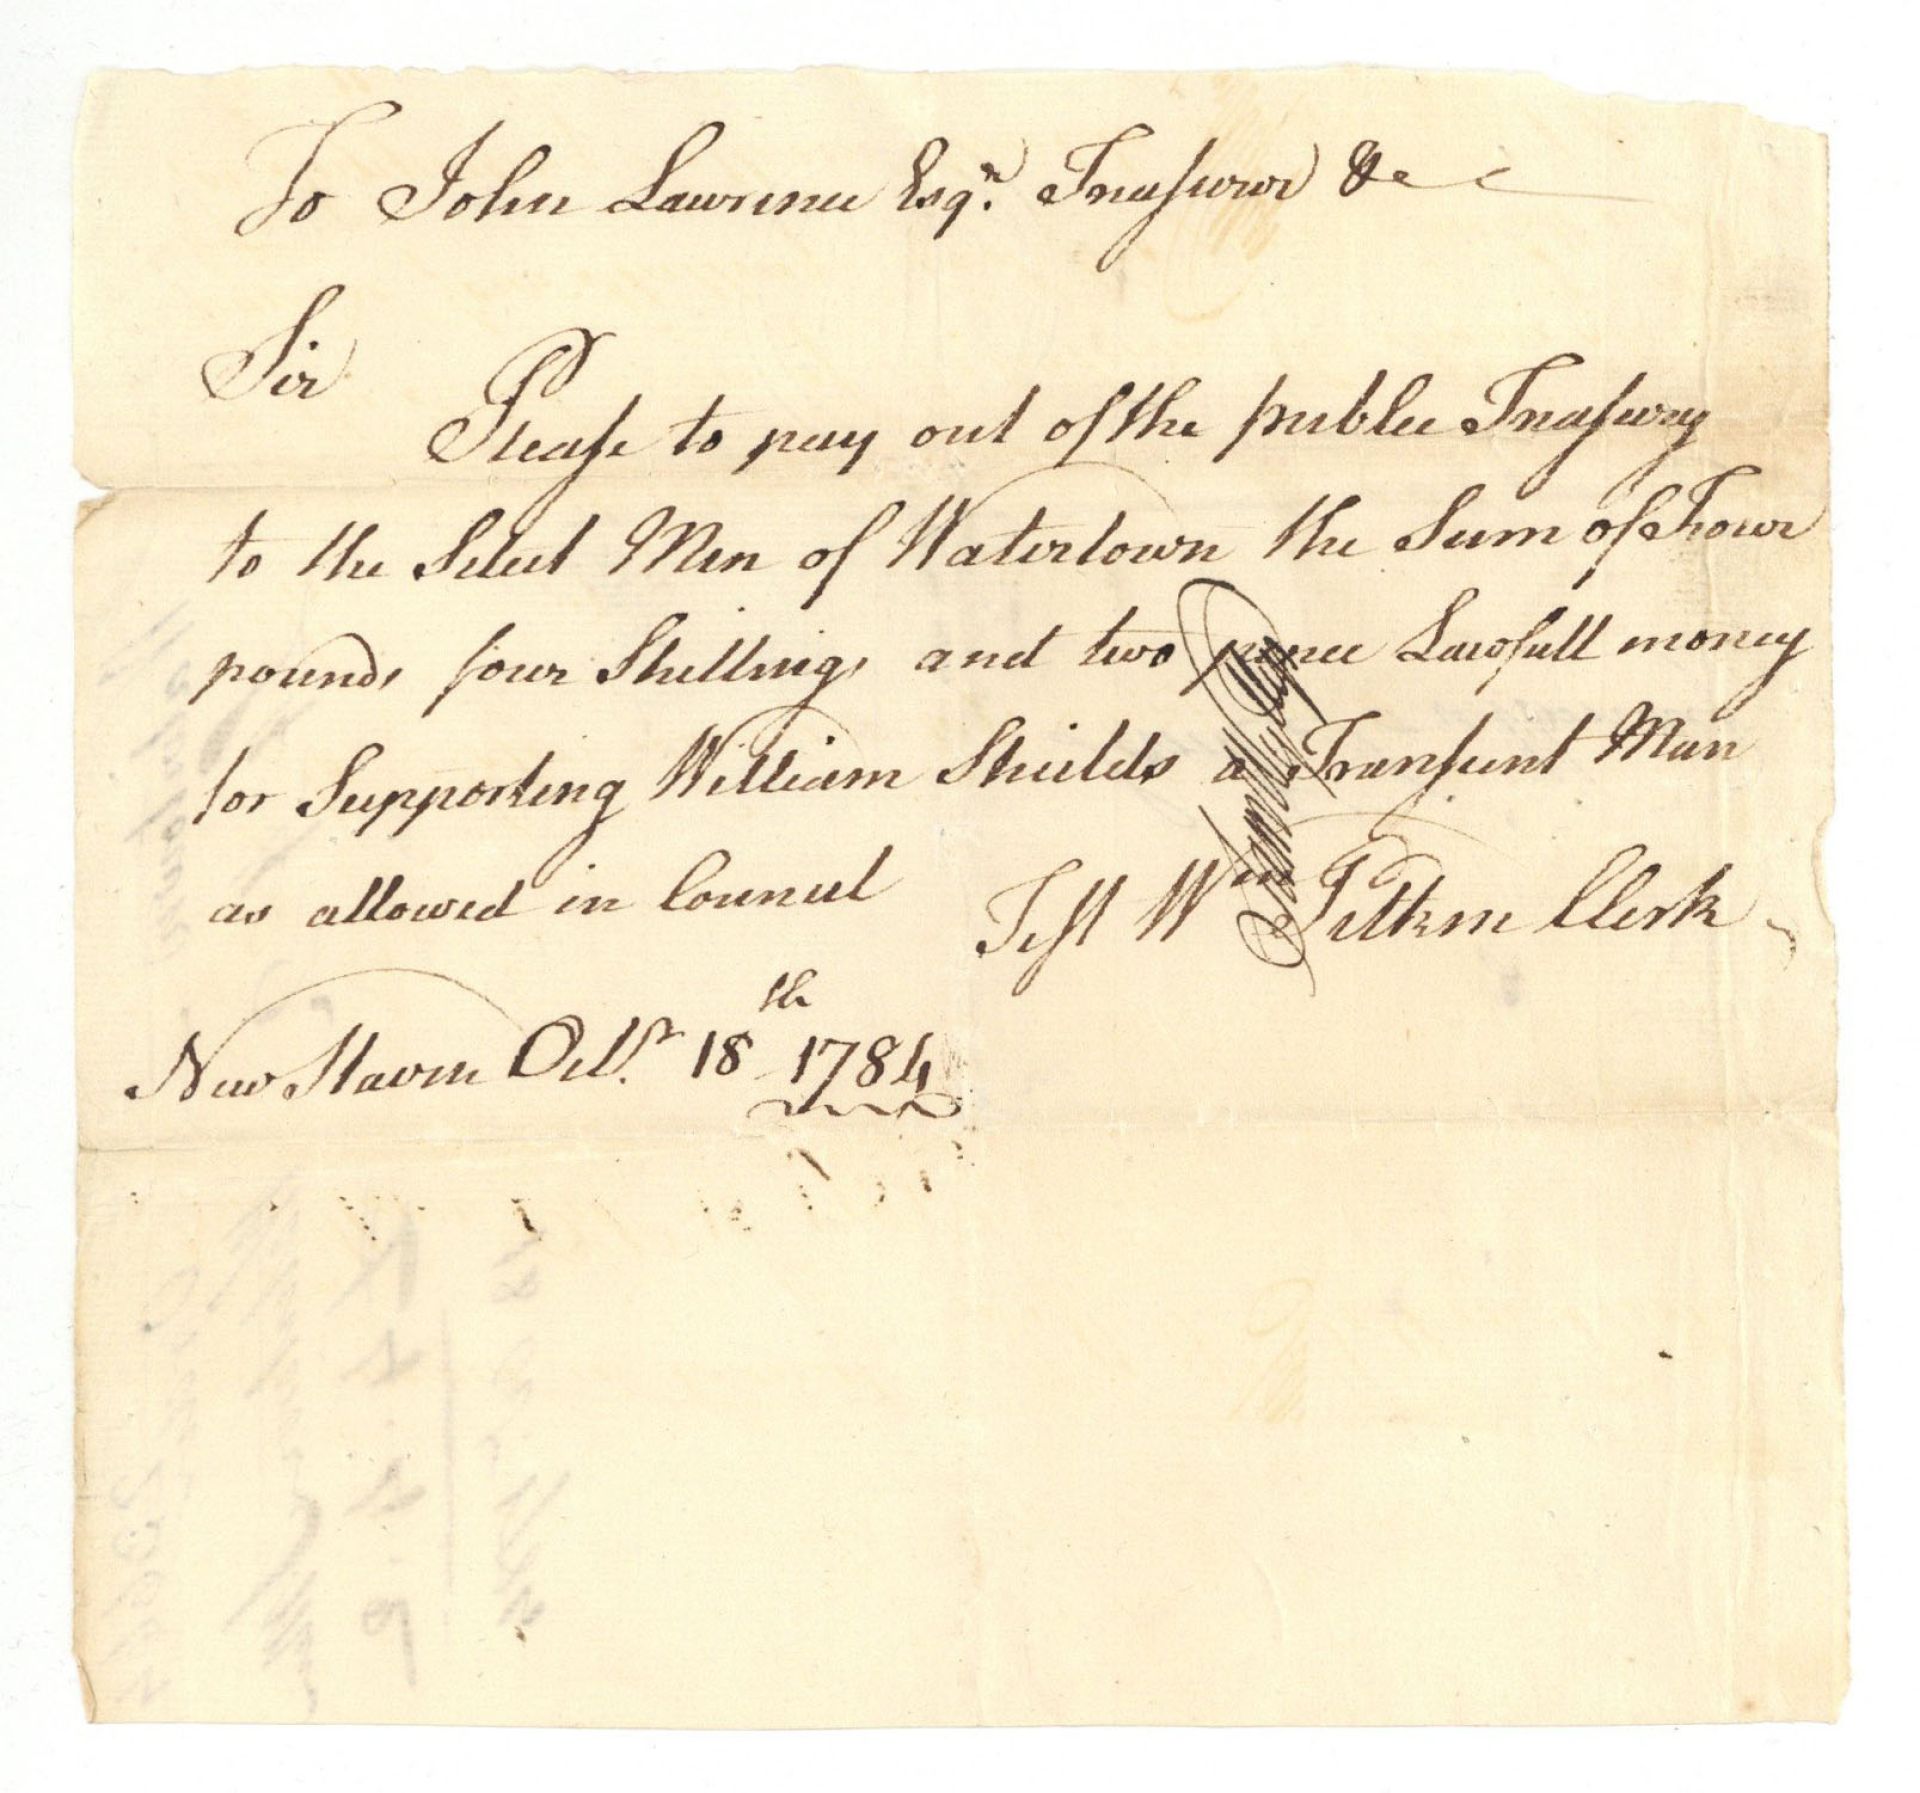 To John Lawrence Esqr. Treasurer &c
Sir
Please to pay out of the public Treasury
to the Select Men of Watertown the Sum of Four
pounds four Shillings and two pence Lawfull money
for Supporting William Shields a Transient Man
as allowed in Council
Test Wm Pitkin Clerk
New Haven Octr. 18th 1784